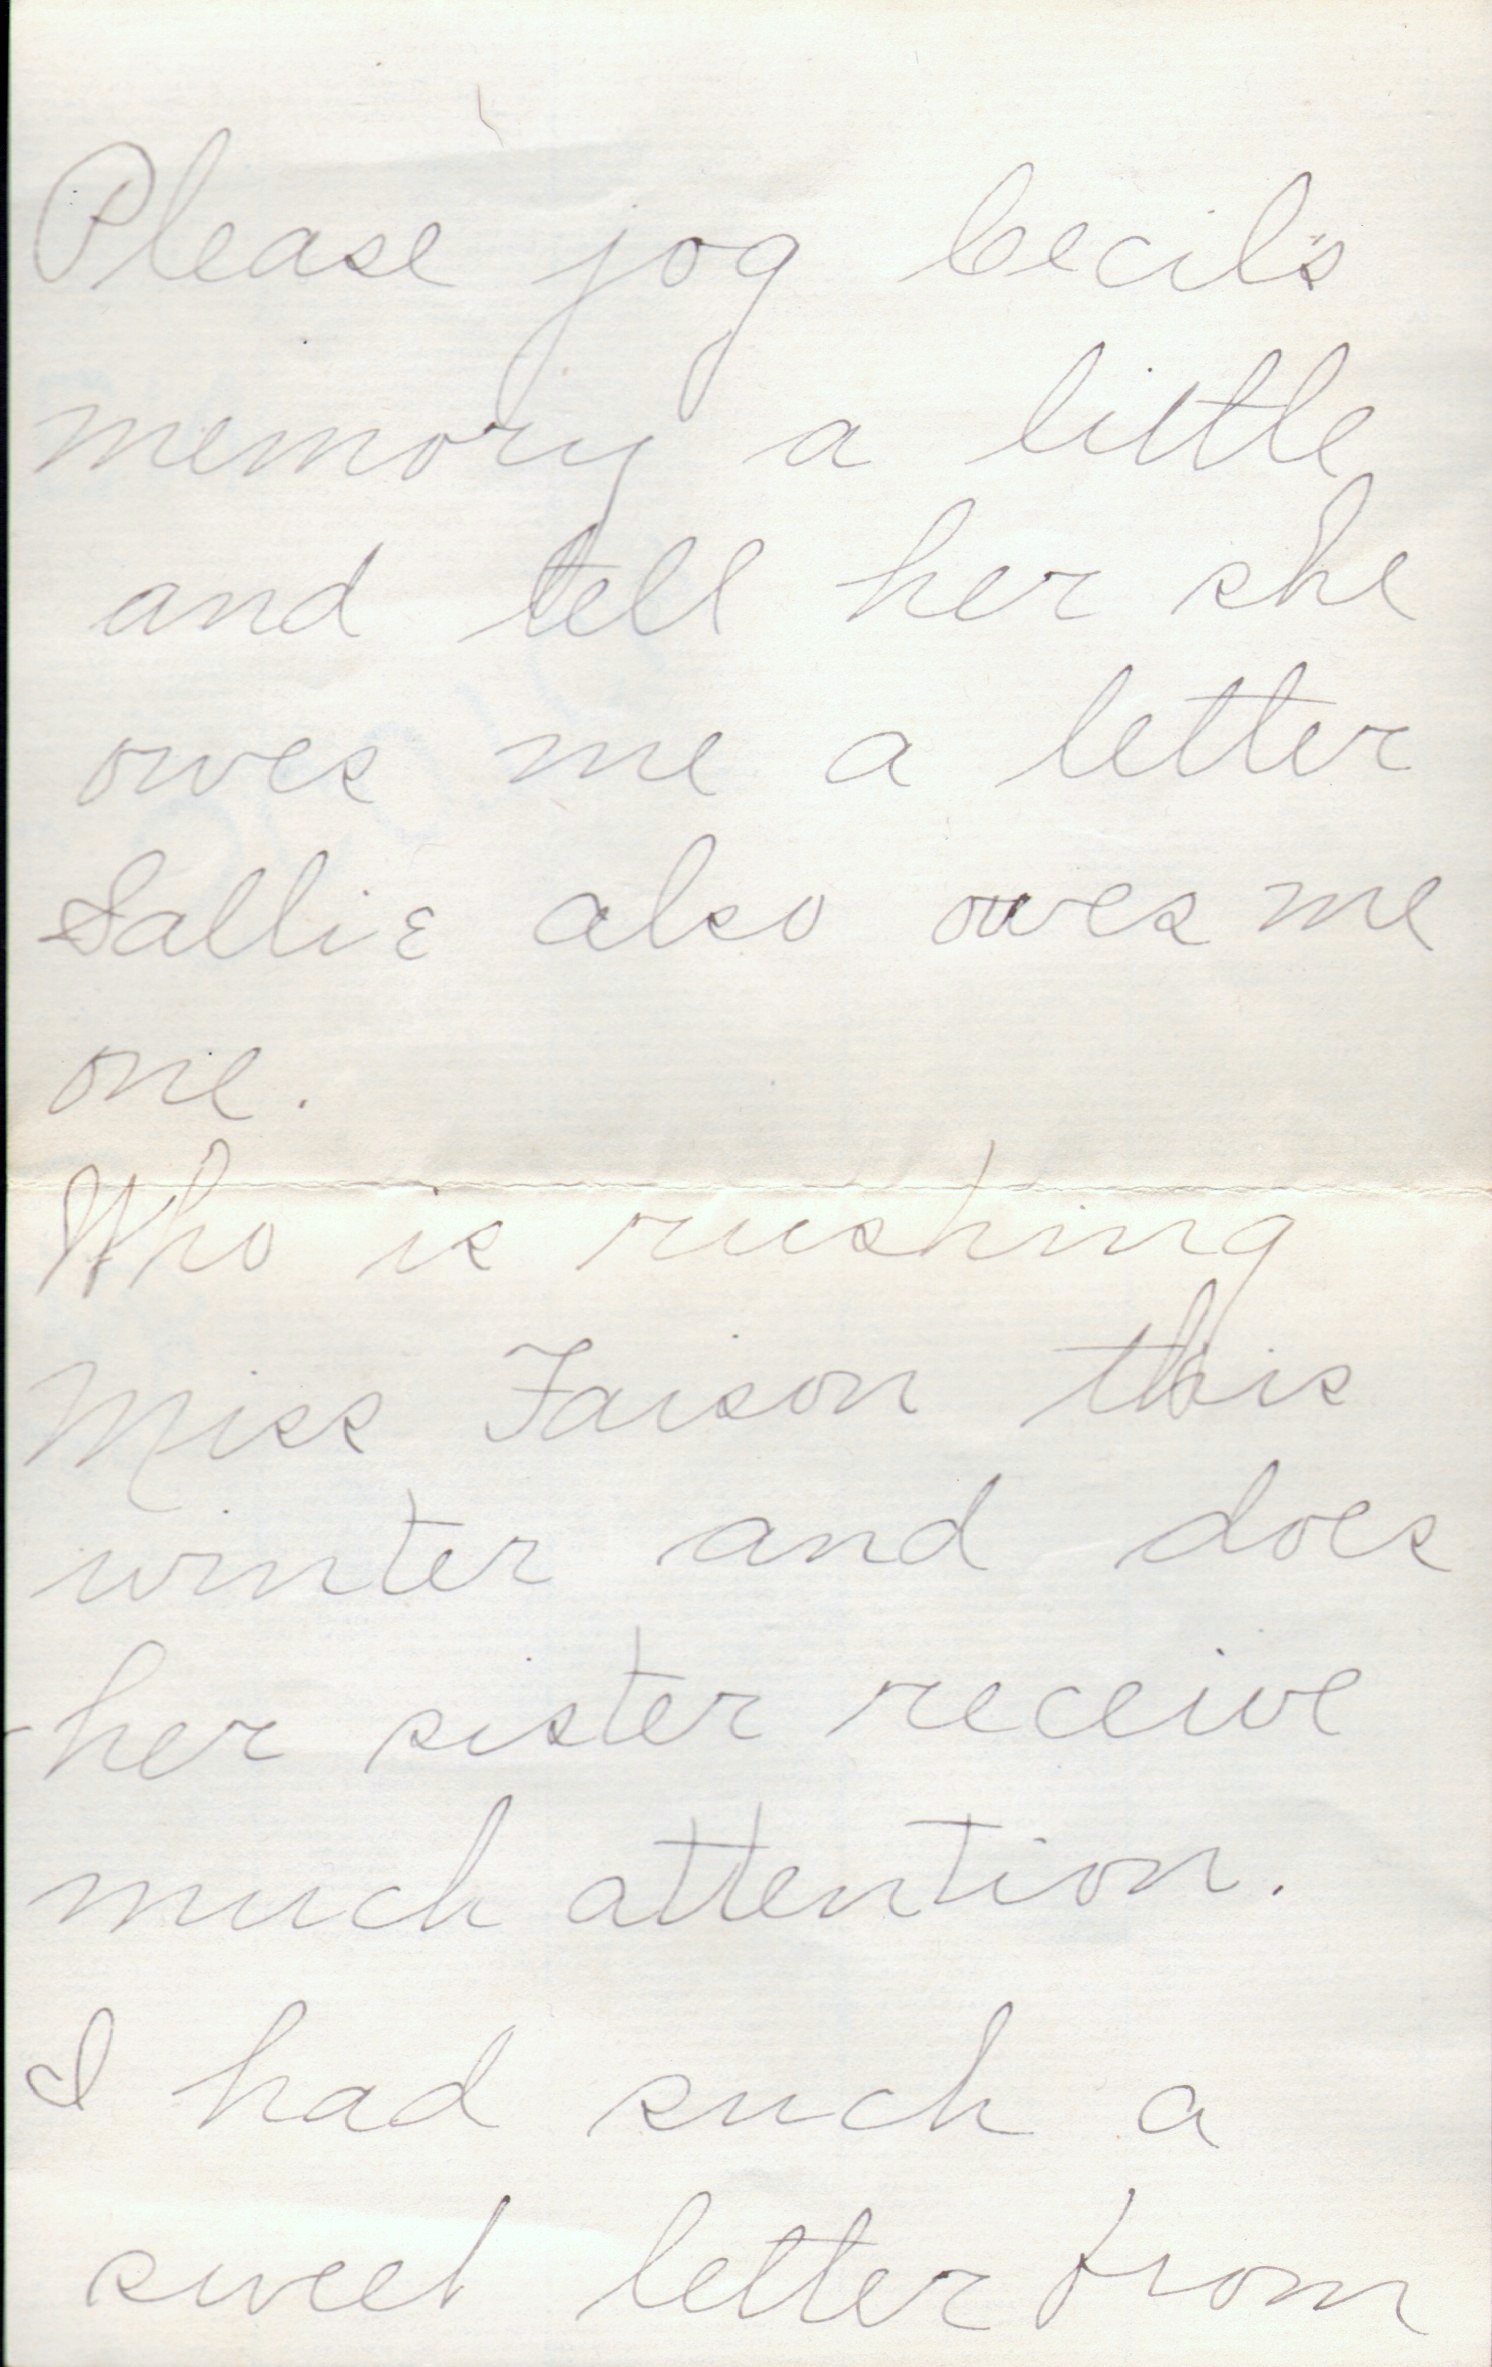 Please jog Cecil's
memory a little
and tell her she
owes me a letter
Sallie also owes me
one.
Who is rushing
Miss Faison this
winter and does
her sister receive
much attention.
I had such a
sweet letter from